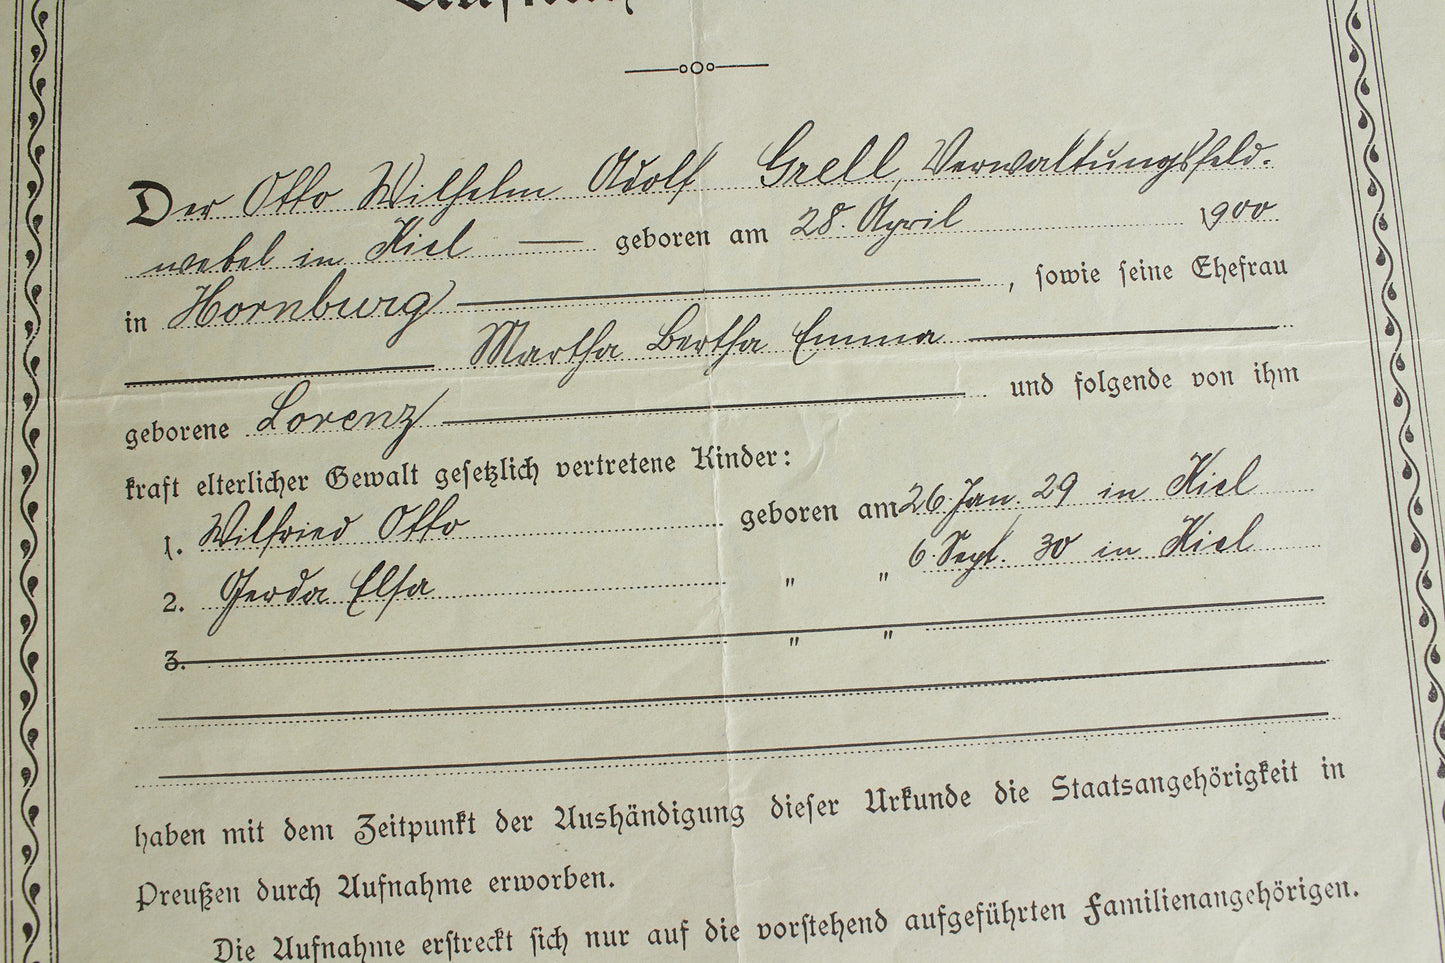 Der Otto Wilhelm Adolf Grell, Verwaltungsfeld-
webel in Kiel — geboren am 28. April 1900
in Hornburg, sowie seine Ehefrau
Martha Bertha Emma
geborene Lorenz und folgende von ihm
kraft elterlicher Gewalt gesetzlich vertretene Kinder:
1. Wilfried Otto geboren am 26. Jan. 29 in Kiel
2. Gerda Elsa " " 6. Sept. 30 in Kiel
3. " "
haben mit dem Zeitpunkt der Aushändigung dieser Urkunde die Staatsangehörigkeit in
Preußen durch Aufnahme erworben.
Die Aufnahme erstreckt sich nur auf die vorstehend aufgeführten Familienangehörigen.